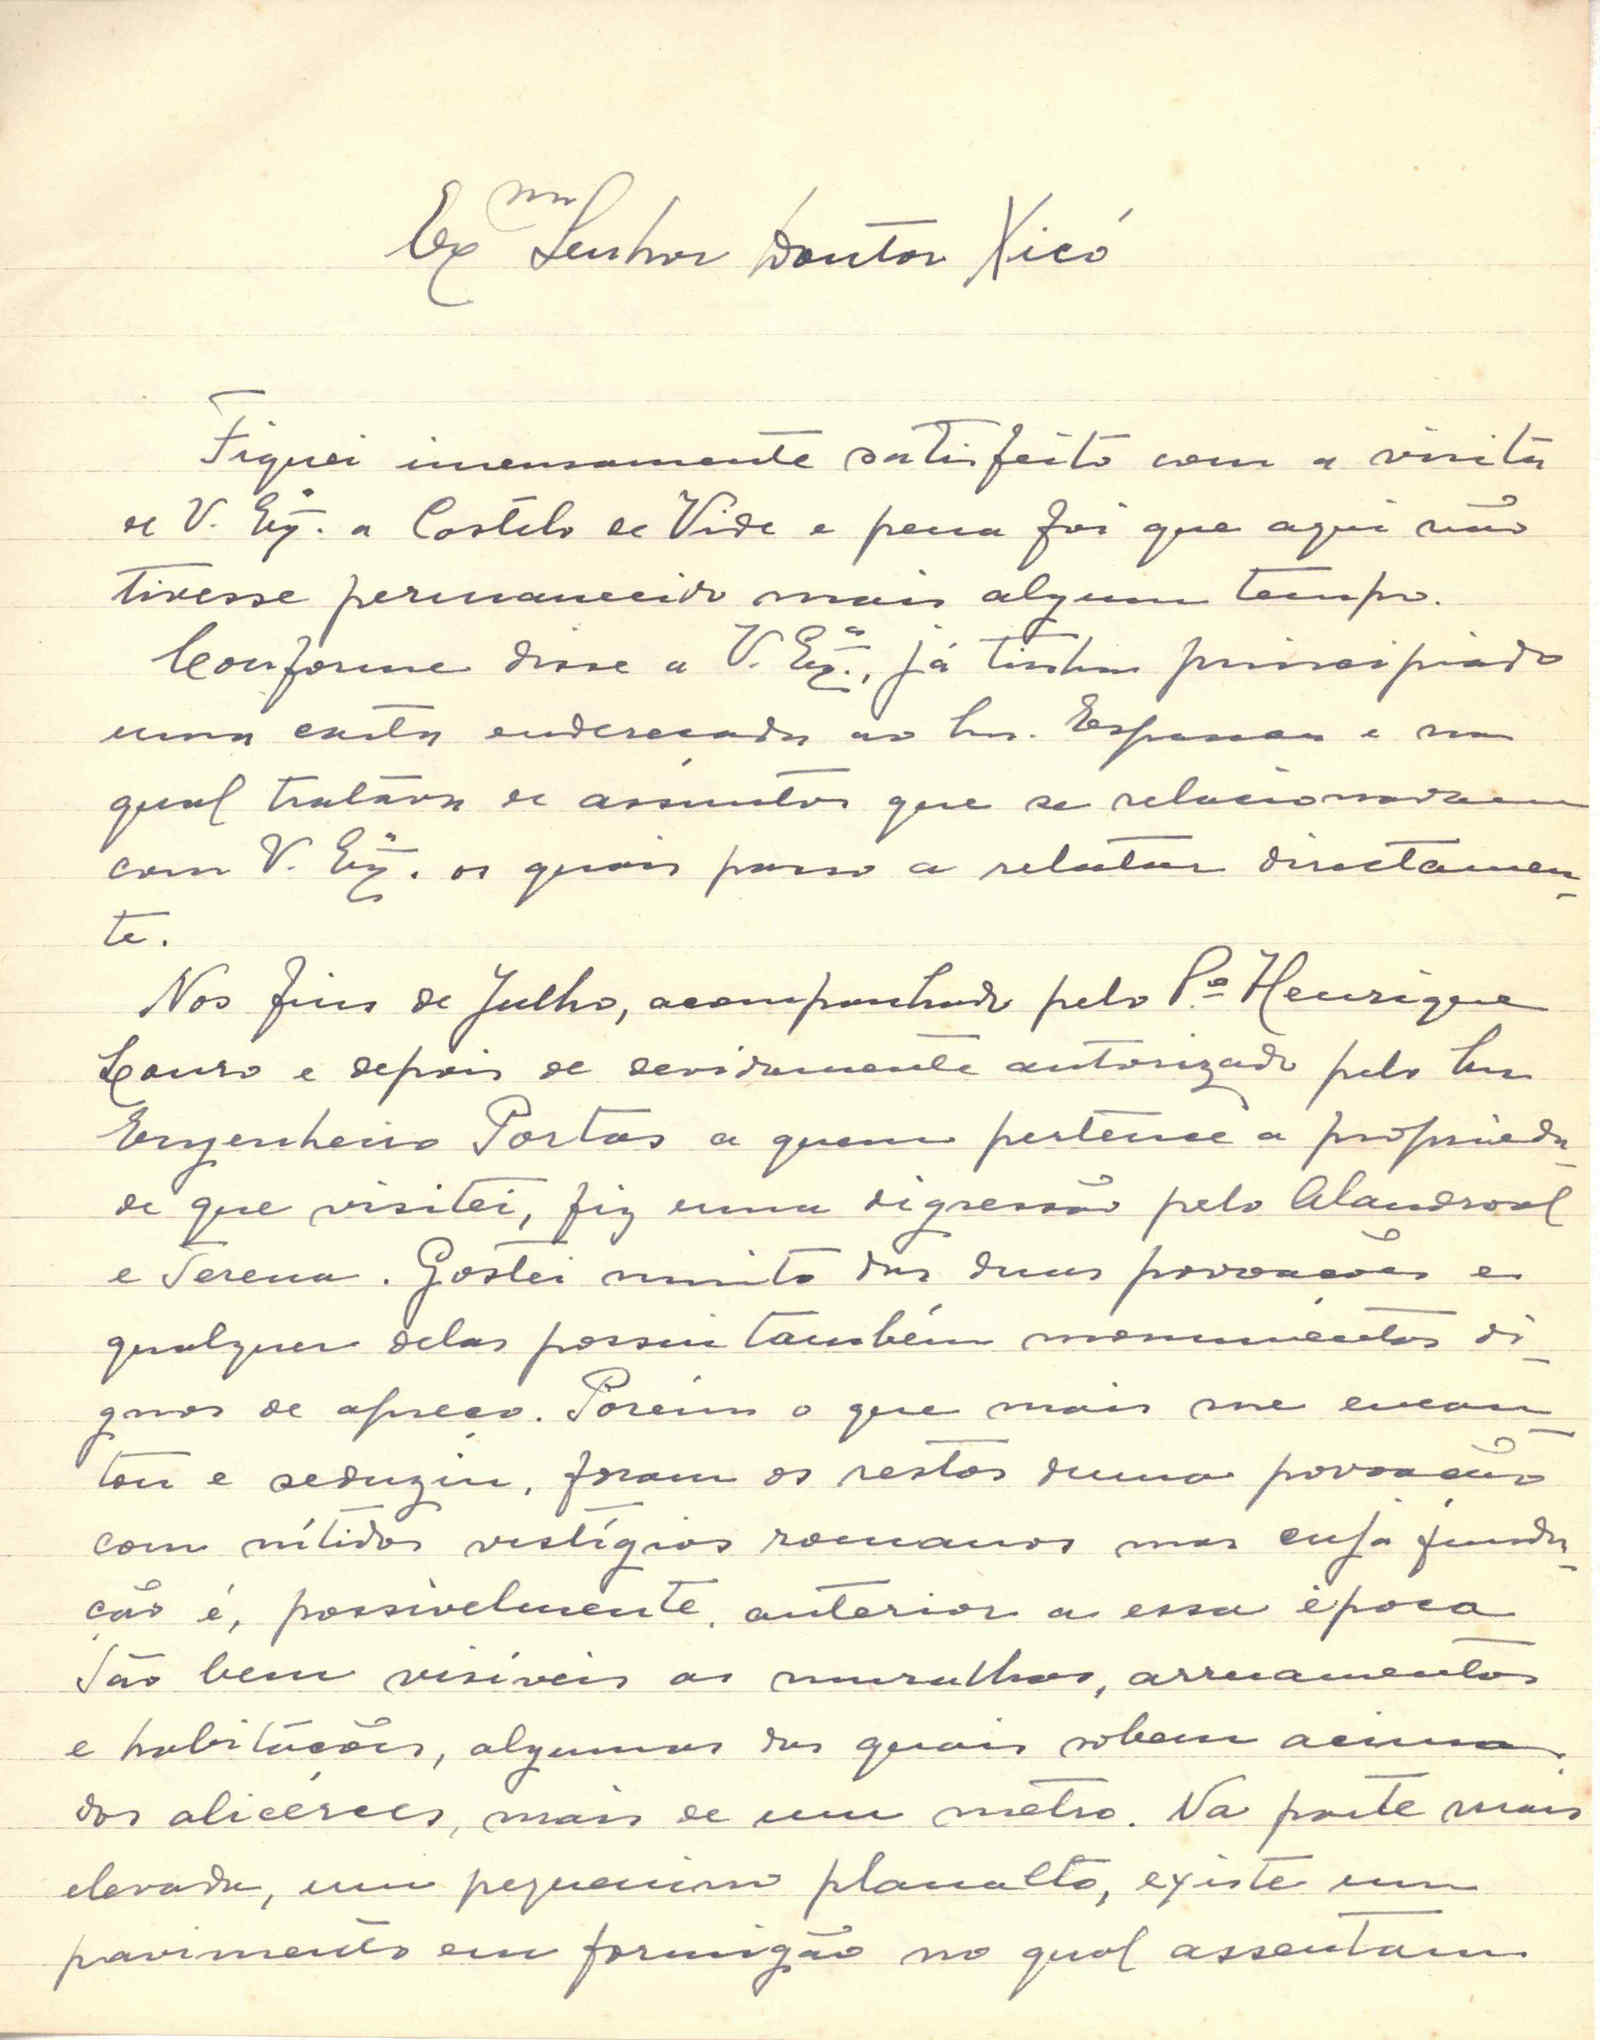 Exmo Senhor Doutor Xicó
Fiquei imensamente satisfeito com a visita
de V. Exª. a Castelo de Vide e pena foi que aqui não
tivesse permanecido mais algum tempo.
Conforme disse a V. Exª., já tinha principiado
uma carta endereçada ao Snr. Espanca e na
qual tratava de assuntos que se relacionavam
com V. Exª. os quais passo a relatar directamen-
te.
Nos fins de Julho, acompanhado pelo Pe Henrique
Louro e depois de devidamente autorizado pelo Snr
Engenheiro Portas a quem pertence a proprieda-
de que visitei, fiz uma digressão pelo Alandroal
e Terena. Gostei muito das duas povoações e
qualquer delas possui também monumentos di-
gnos de apreço. Porém o que mais me encan-
tou e seduziu, foram os restos duma povoação
com nítidos vestígios romanos mas cuja funda-
ção é, possivelmente, anterior a essa época
São bem visíveis as muralhas, arruamentos
e habitações, algumas das quais sobem acima
dos alicerces, mais de um metro. Na parte mais
elevada, um pequenino planalto, existe um
pavimento em formigão no qual assentam